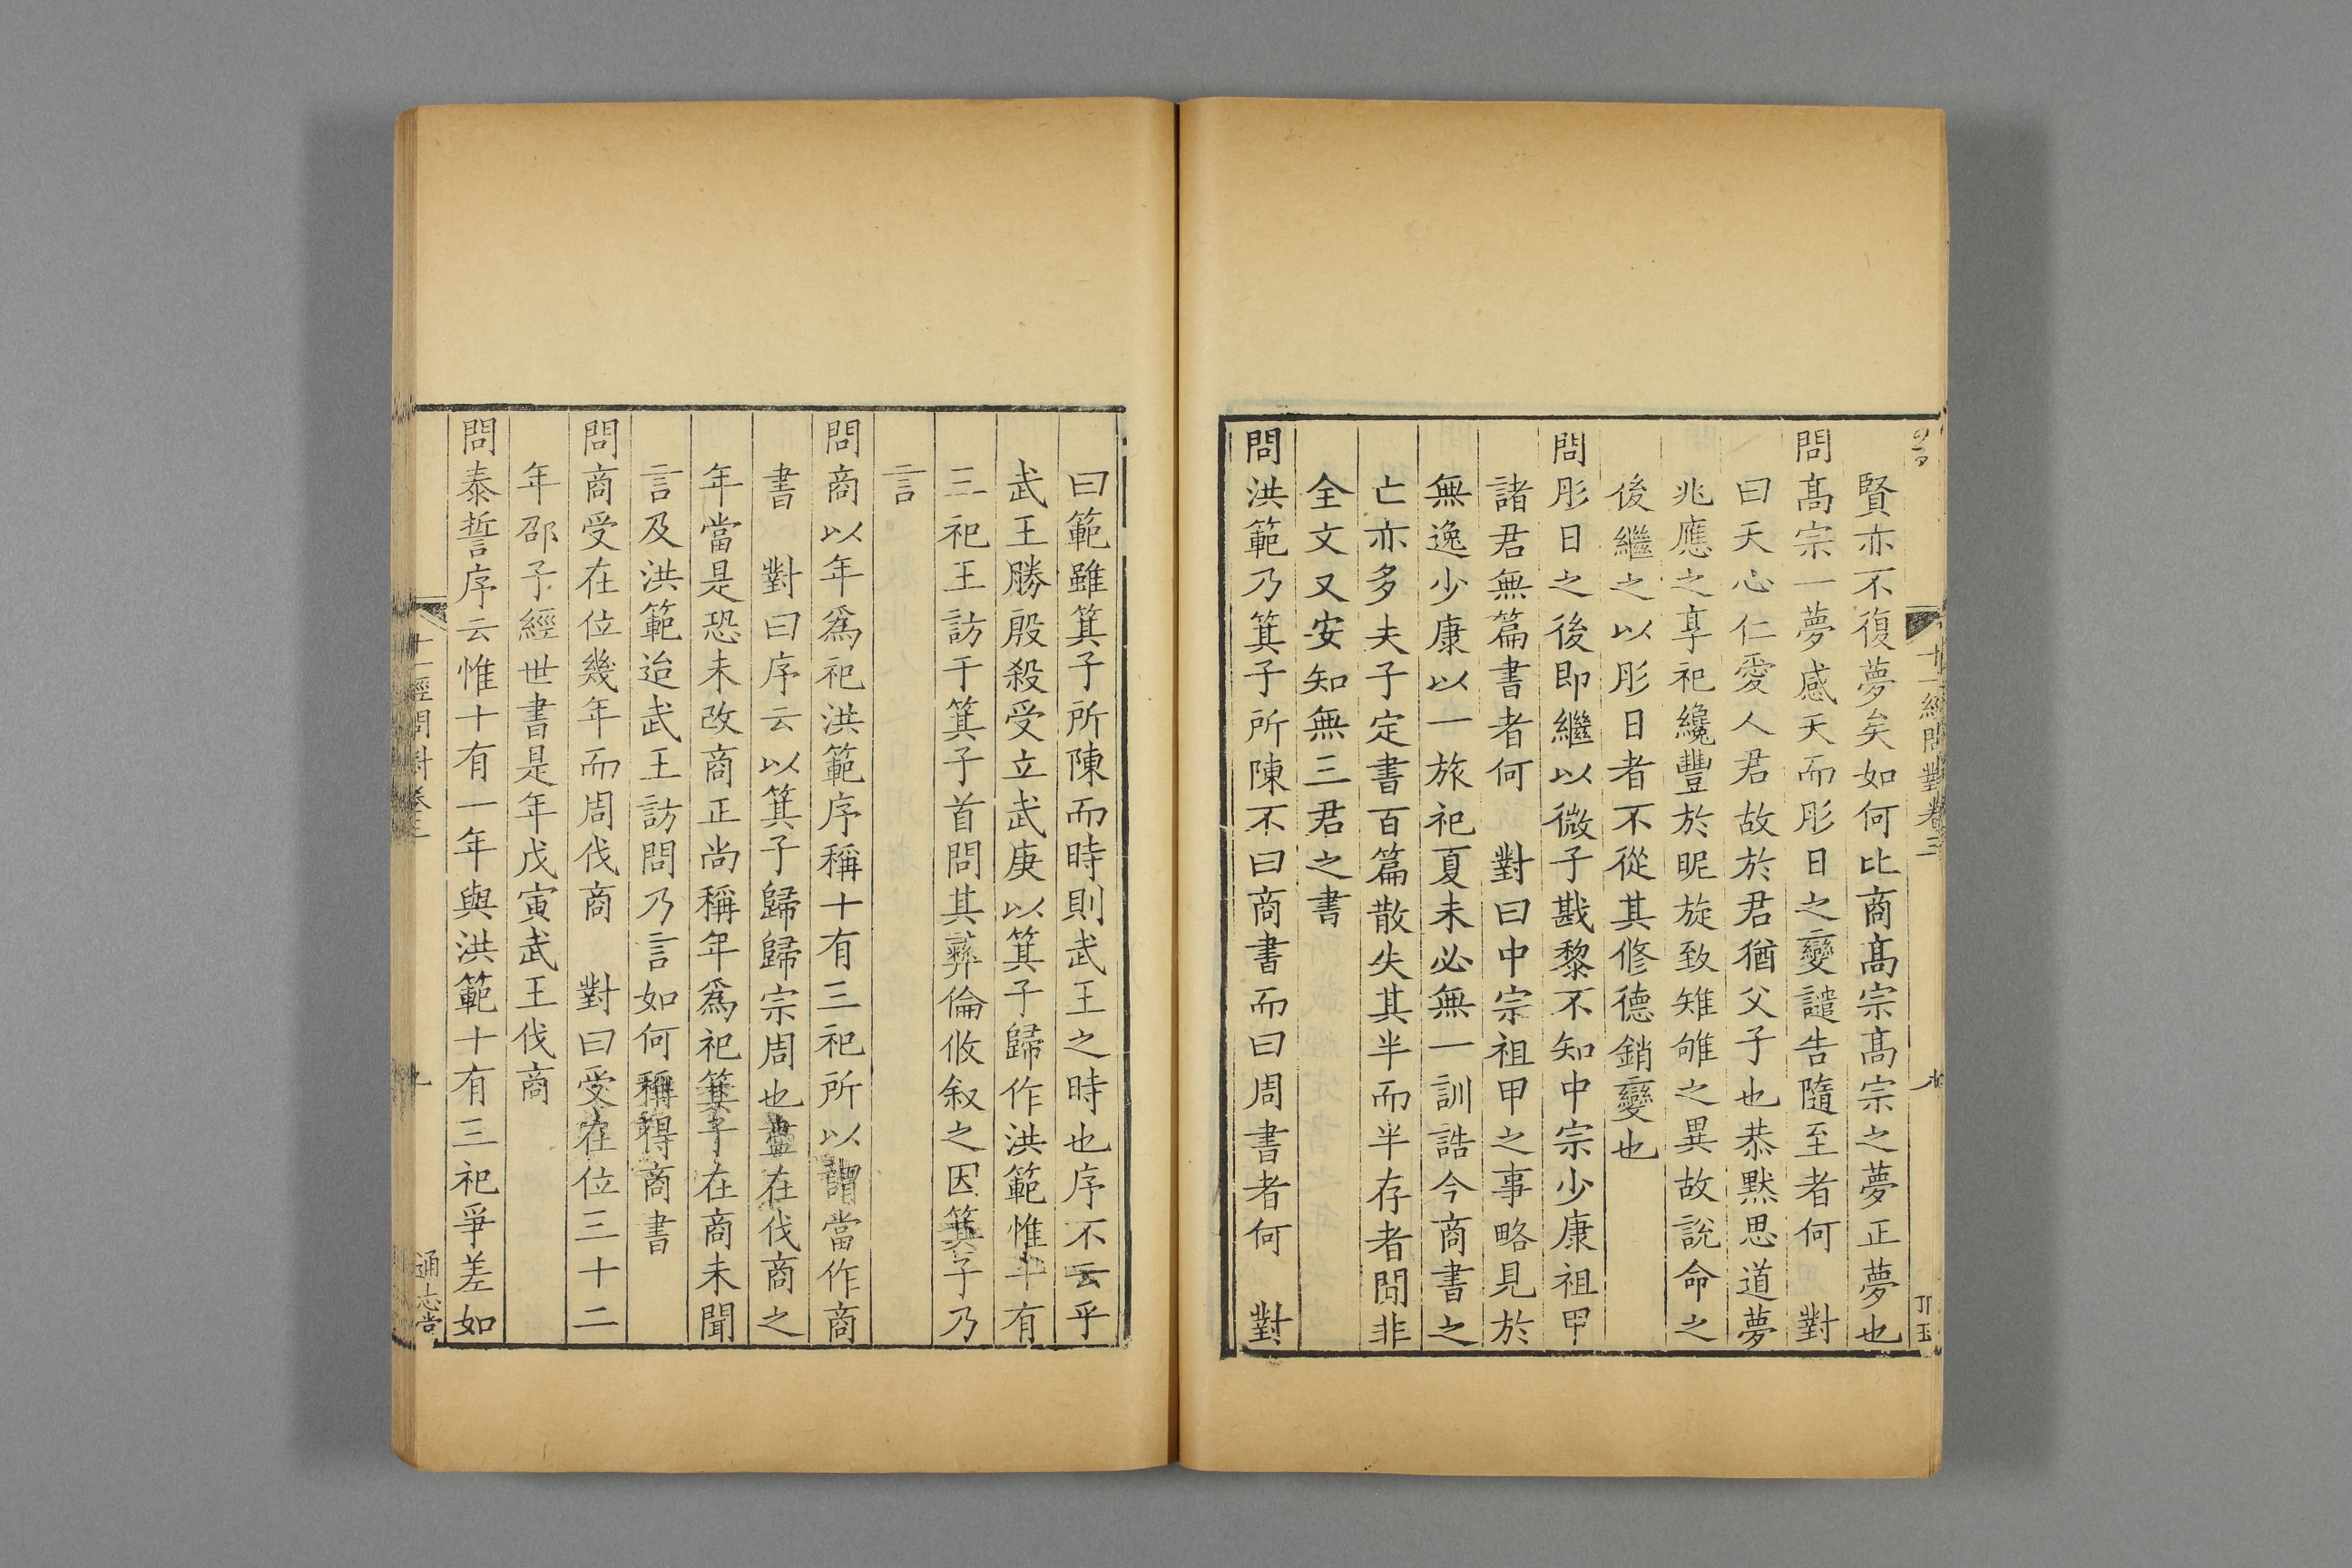 十一經問對卷三
賢亦不復夢矣如何比商髙宗髙宗之夢正夢也
問髙宗一夢感天而肜日之變譴告隨至者何　對
曰天心仁愛人君故於君猶父子也恭黙思道夢
兆應之享祀纔豐於昵旋致雉雊之異故說命之
後繼之以肜日者不從其修德銷變也
問肜日之後即繼以微子戡黎不知中宗少康祖甲
諸君無篇書者何　對曰中宗祖甲之事略見於
無逸少康以一旅祀夏未必無一訓誥今商書之
亡亦多夫子定書百篇散失其半而半存者間非
全文又安知無三君之書
問洪範乃箕子所陳不曰商書而曰周書者何　對
曰範雖箕子所陳而時則武王之時也序不云乎
武王勝殷殺受立武庚以箕子歸作洪範惟十有
三祀王訪于箕子首問其彝倫攸叙之因箕子乃
言
問商以年爲祀洪範序稱十有三祀所以謂當作商
書　對曰序云以箕子歸歸宗周也蓋在伐商之
年當是恐未改商正尚稱年爲祀箕子在商未聞
言及洪範迨武王訪問乃言如何稱得商書
問商受在位幾年而周伐商　對曰受在位三十二
年邵子經世書是年戊寅武王伐商
問泰誓序云惟十有一年與洪範十有三祀爭差如
十一經問對卷三
通志堂